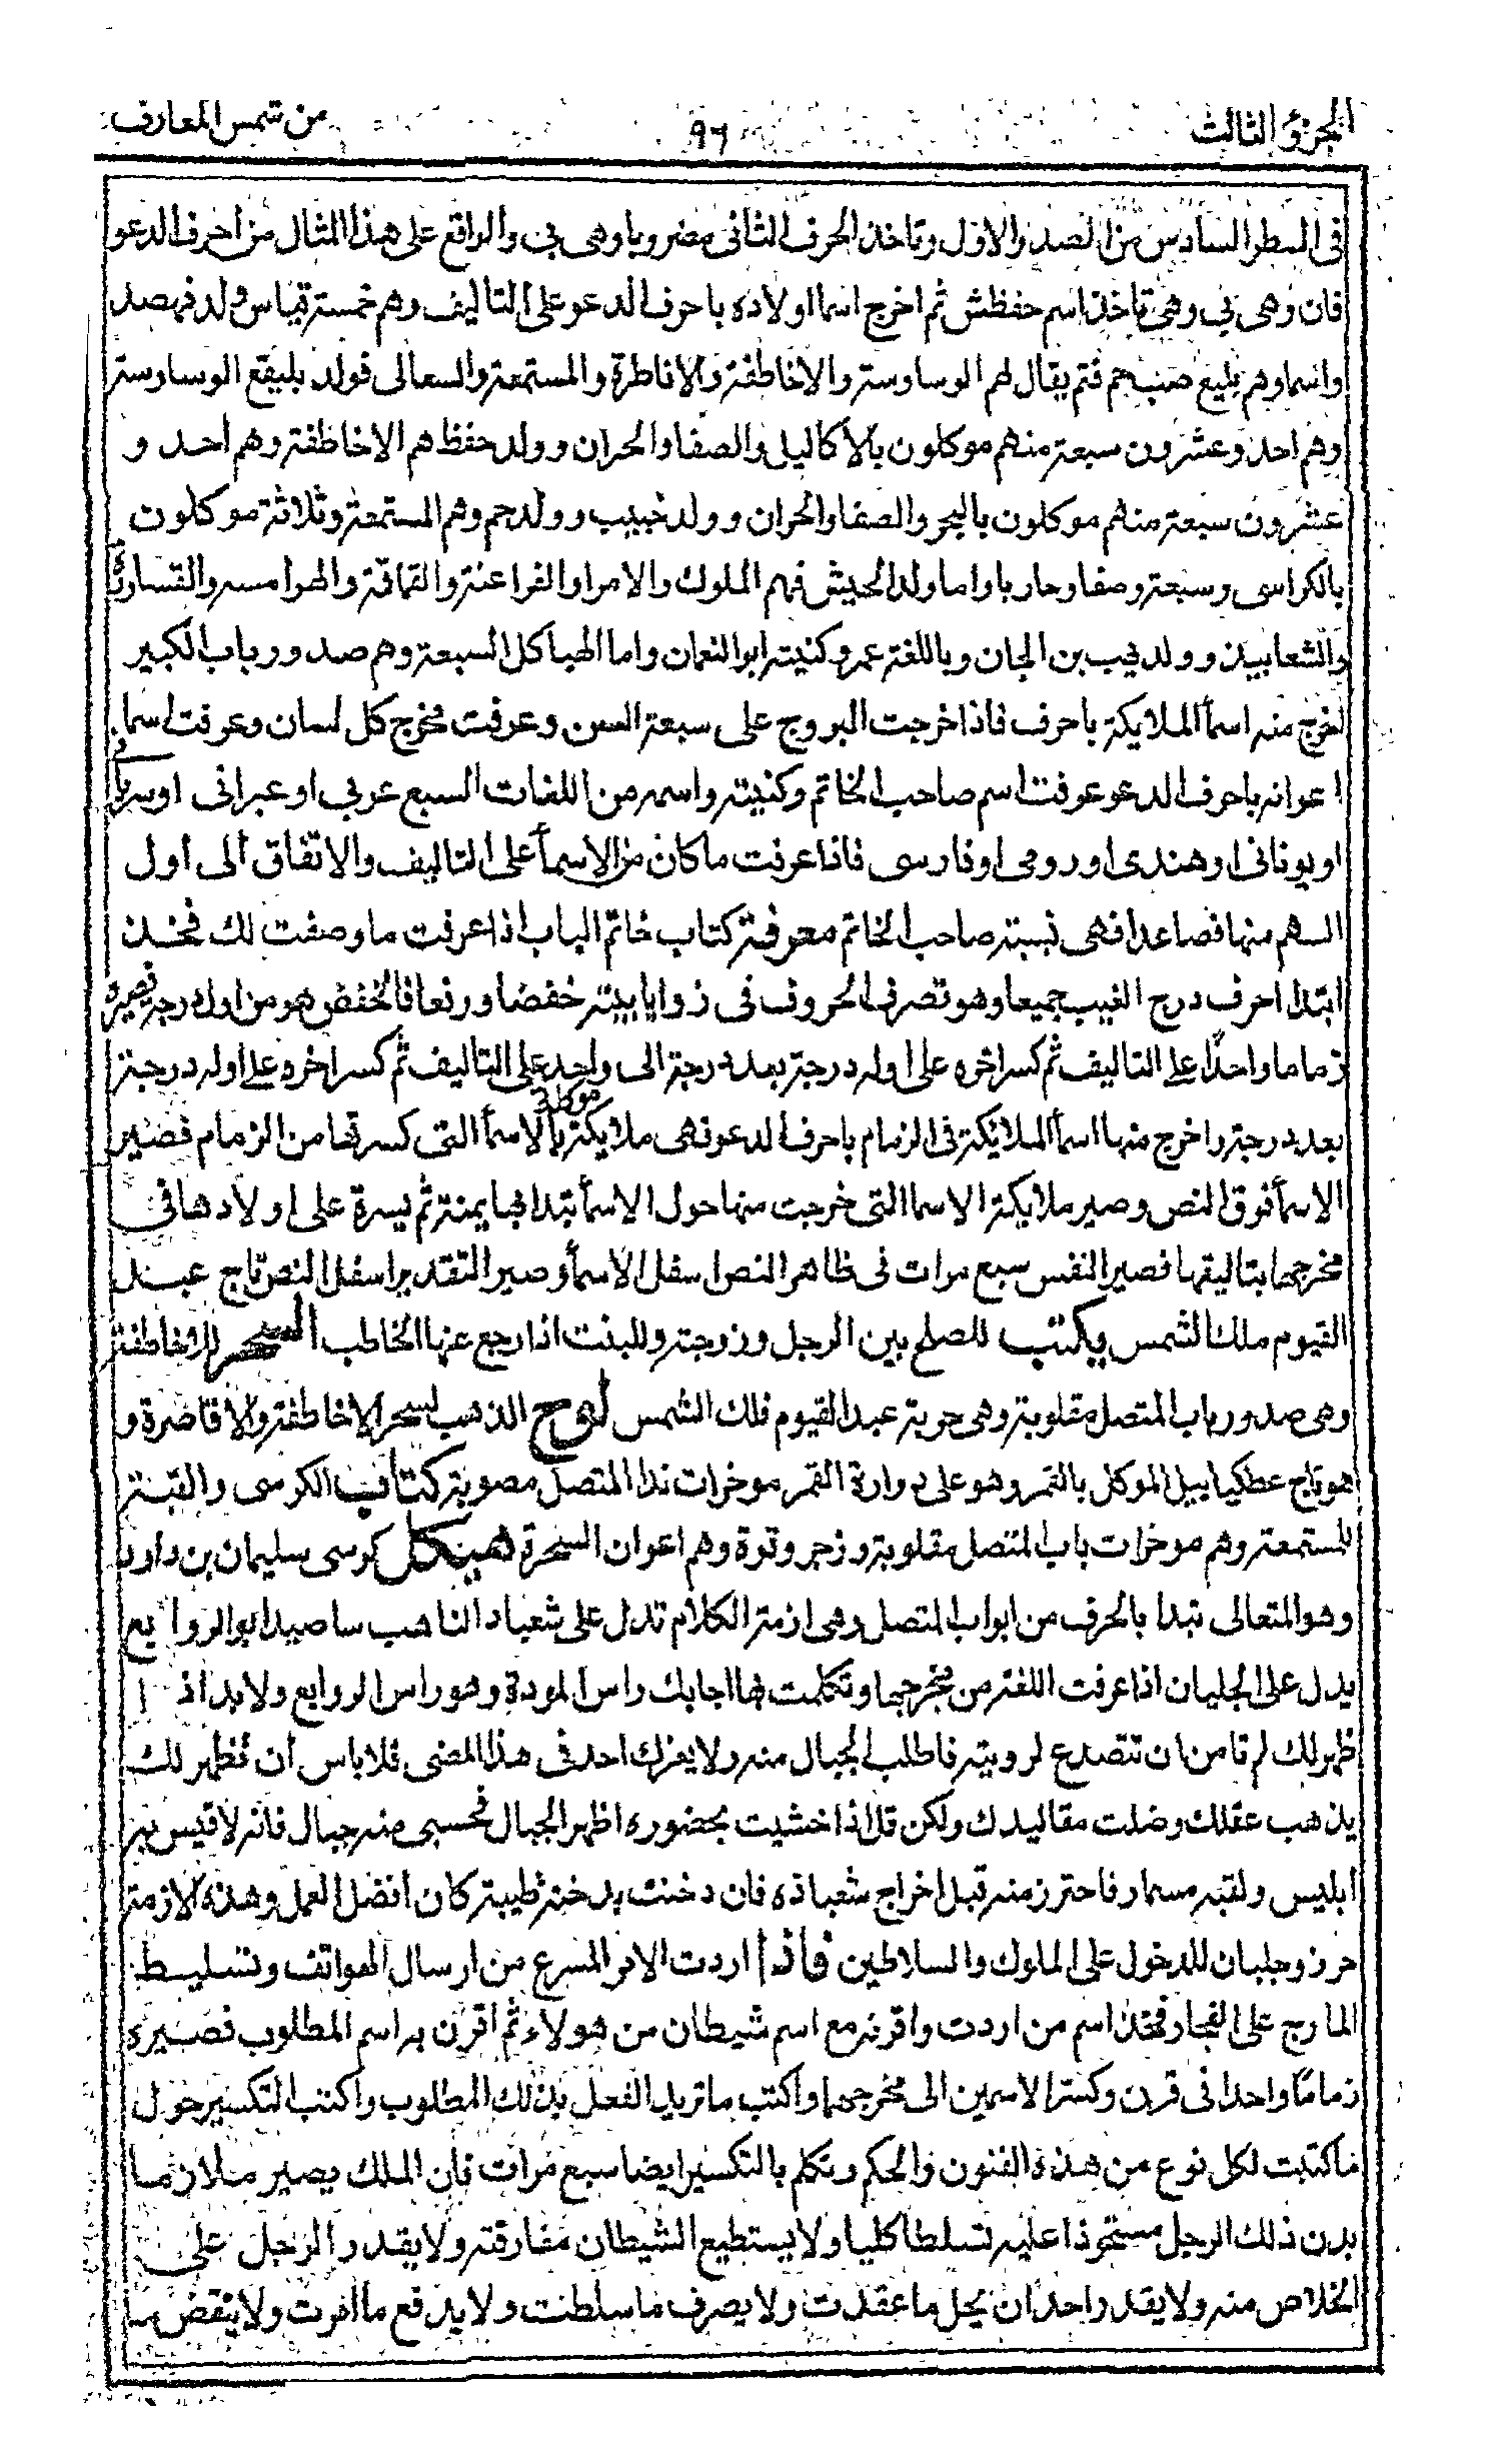 الجزؤ الثالث
٩٦
من شمس المعارف
فى السطر السادس من الصدر والاول وتاخذ الحرف الثانى مضروبا وهى بى والواقع على هذا المثال من احرف الدعو
فان وهى بى وهى تاخذ اسم حفظش ثم اخرج اسما اولاده باحرف الدعو على التاليف وهم خمسة قياس ولد فهصد
واسماوهم بليغ حم فتم يقال لهم الوساوسة والاخاطفة والاناطرة والمستمعة والسعالى فولد بليقع الوساوسة
وهم احد وعشرون سبعة منهم موكلون بالاكاليل والصفاوالحران وولد حفظ هم الاخاظفة وهم احد و
عشرون سبعة منهم موكلون بالبحر والصفاوالحران وولد خبيب وولد جم وهم المستمعة وثلاثة موكلون
بالكراسى وسبعة وصفا وحاربا واما ولد الحيش فهم الملوك والامرا والفراعنة والقاقة والهرامسه والقساورة
والشعابيذ وولد نيب بن الجان وباللغة عمر وكنيته ابو النعمان واما الهياكل السبعة وهم صدور باب الكبير
تخرج منه اسمأ الملايكة باحرف فاذا خرجت البروج على سبعة السن وعرفت مخرج كل لسان وعرفت اسما
اعوانه باحرف الدعو عرفت اسم صاحب الخاتم وكنيته واسمه من اللغات السبع عربي او عبرانى اوسريانى
او يونانى او هندى او رومى او فارسى فاذا عرفت ما كان من الاسمأ على التاليف والاتفاق الى اول
السهم منها فصاعدا فهى نسبة صاحب الخاتم معرفة كتاب خاتم الباب اذا عرفت ما وصفت لك فخذ
ابتدا احرف درج الغيب جميعا وهو تصرف الحروف فى زوايا بيته خفضا ورفعا فالخفض هو من اول درجة تصيره
زماما واحدًا على التاليف ثم كسر اخره على اوله درجة بعد درجة الى واحد على التاليف ثم كسر اخره على اوله درجة
بعد درجة واخرج منها اسمأ الملائكة فى الزمام باحرف الدعو فهى ملايكة موكلة بالاسمأ التى كسرتها من الزمام فصير
الاسمأ فوق النص وصير ملايكة الاسما التى خرجت منها حول الاسمأ تبتدا بها يمنة ثم يسرة على اولادها فى
مخرجها بتاليفها فصير النفس سبع مرات فى ظاهر النص اسفل الاسمأ وصير التقدير اسفل النص تاج عبد
القيوم ملك الشمس يكتب للصلح بين الرجل وزوجته وللبنت اذا رجع عنها الخاطب السحر للاخاطفة
وهى صدور باب المتصل مقلوبة وهى حربة عبد القيوم فلك الشمس لوح الذهب لسحر الاخاطفة والاقاضرة و
هو تاج عطكيابيل الموكل بالقمر وهو على دوارة القمر موخرات ندا المتصل مصوبة كتاب الكرسى والقبة
للمستمعة وهم موخرات باب المتصل مقلوبة وزجر وقوة وهم اعوان السحرة هيكل كرسى سليمان بن داود
وهو المتعالى تبدا بالحرف من ابواب المتصل وهى ازمة الكلام تدل على شعباد الناهب ساصيد ابو الروابع
يدل على الجلبان اذا عرفت اللغة من مخرجها وتكلمت بها اجابك راس المودة وهو راس الروابع ولا بد اذا
ظهر لك لم تامن ان تتصدع لرويته فاطلب الجبال منه ولا يغرك احد فى هذا المضى فلا باس ان تظهر لك
يذهب عقلك وضلت مقاليدك ولكن قل اذا خشيت بحضوره اظهر الجبال نحسبى منه جبال فانه لا قيس بن
ابليس ولقبه مسمار فاحترز منه قبل اخراج شعباذه فان دخنت بدخنة طيبة كان افضل العمل وهذه الازمة
حرز وجلبان للدخول على الملوك والسلاطين فاذا اردت الامر المسرع من ارسال الهواتف وتسليط
المارج على الفجار فخذ اسم من اردت واقرنه مع اسم شيطان من هولاء ثم اقرن به اسم المطلوب فصيره
زمامًا واحدا فى قرن وكسر الاسمين الى مخرجهما واكتب ما تريد الفعل بذلك المطلوب واكتب التكسير حول
ما كتبت لكل نوع من هذه الفنون والحكم وتكلم بالتكسير ايضا سبع مرات فان الملك يصير ملازما
بدن ذلك الرجل مستحوذا عليه تسلطا كليا ولا يستطيع الشيطان مفارقته ولا يقدر الرجل على
الخلاص منه ولا يقدر احد ان يحل ما عقدت ولا يصرف ما سلطت ولا يدفع ما امرت ولا ينقض ما